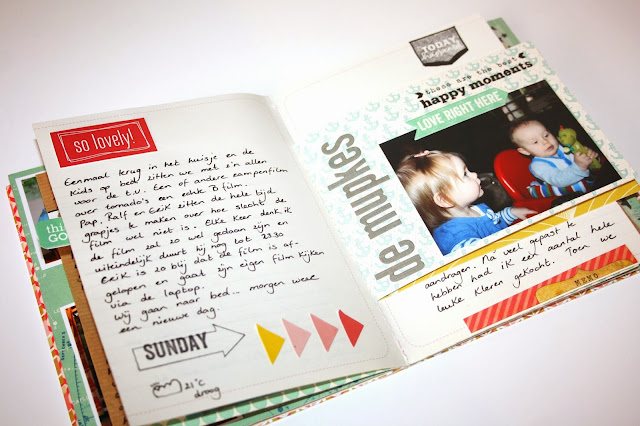 so lovely!
Eenmaal terug in het huisje en de
kids op bed zitten we met z'n allen
voor de t.v. Een of andere rampenfilm
over tornado's een echte B film.
Pap, Ralf en Erik zitten de hele tijd
grapjes te maken over hoe slecht de
film wel niet is. Elke keer denk ik
de film zal zo wel gedaan zijn maar
uiteindelijk duurt hij nog tot 23.30
Erik is zo blij dat de film is af-
gelopen en gaat zijn eigen film kijken
via de laptop.
Wij gaan naar bed... morgen weer
een nieuwe dag.
SUNDAY
21°C
droog
TODAY
these are the best
happy moments
LOVE RIGHT HERE
de mupkes
aandragen. Na veel gepast te
hebben had ik een aantal hele
leuke kleren gekocht. Toen we
MEMO